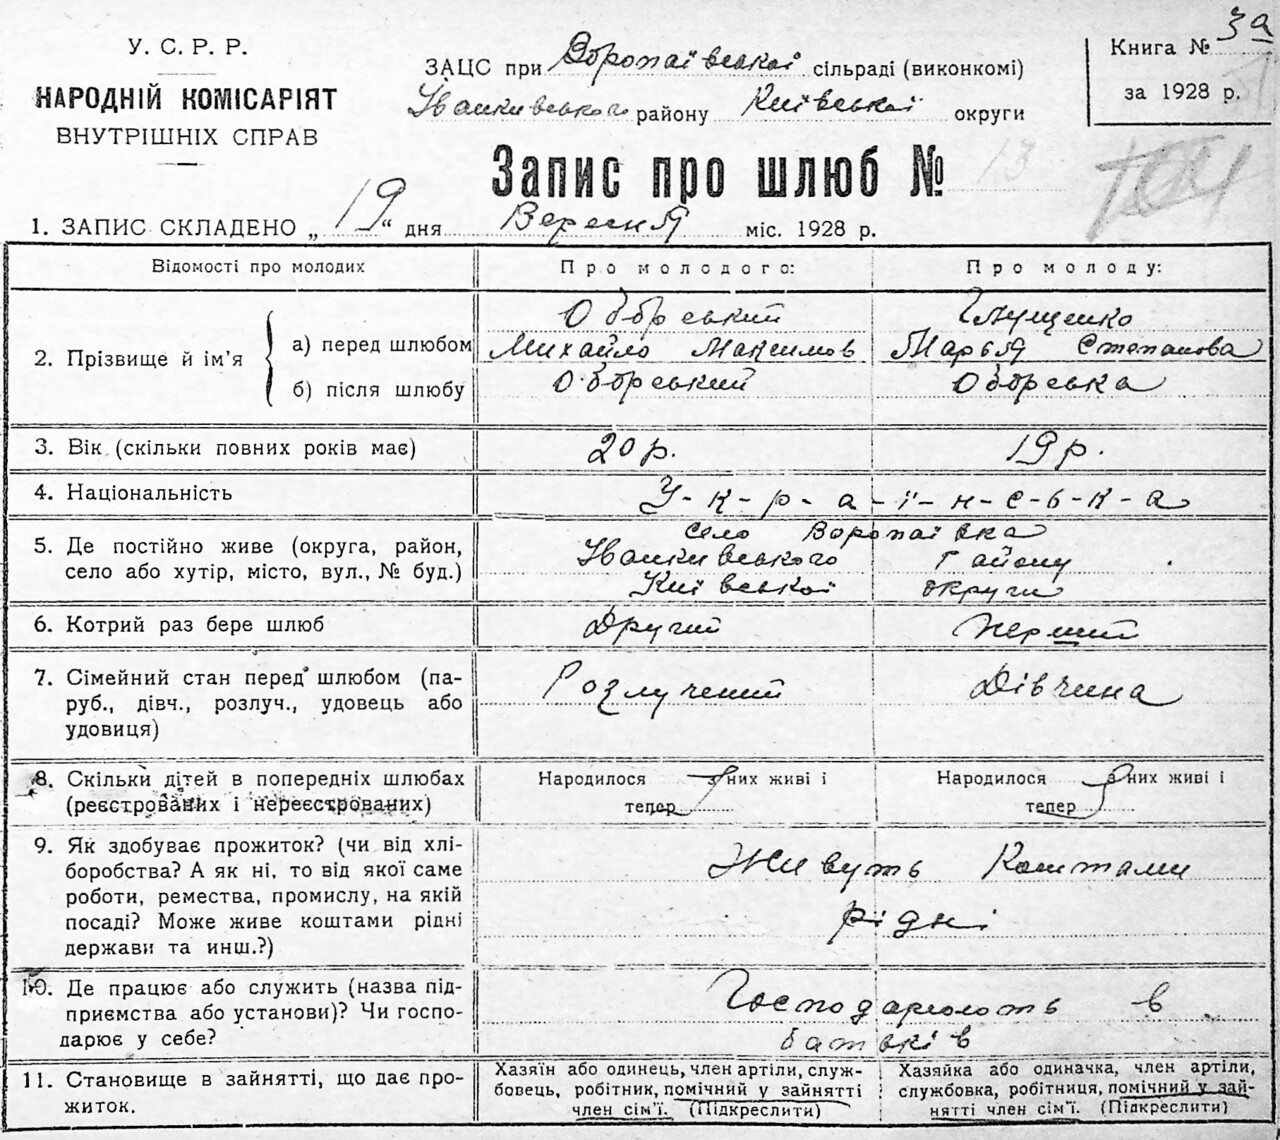 У. С. Р. Р.
НАРОДНІЙ КОМІСАРІЯТ
ВНУТРІШНІХ СПРАВ
ЗАЦС при Воропаївської сільраді (виконкомі)
Іванкивського району Київської округи
Книга № 3а
за 1928 р.
Запис про шлюб № 13
1. ЗАПИС СКЛАДЕНО „ 19 “ дня Вересня міс. 1928 р.
Відомості про молодих
Про молодого:
Про молоду:
2. Прізвище й ім’я
а) перед шлюбом
б) після шлюбу
Оборський
Михайло Максимов
Оборський
Глущенко
Марья Степанова
Оборська
3. Вік (скільки повних років має)
20 р.
19 р.
4. Національність
У-к-р-а-ї-н-с-ь-к-а
5. Де постійно живе (округа, район,
село або хутір, місто, вул., № буд.)
Село Воропаївка
Іванкивського Району
Київської округи
6. Котрий раз бере шлюб
Другий
Перший
7. Сімейний стан перед шлюбом (па-
руб., дівч., розлуч., удовець або
удовиця)
Розлучений
Дівчина
8. Скільки дітей в попередніх шлюбах
(реєстрованих і нереєстрованих)
Народилося з них живі і
тепер
Народилося з них живі і
тепер
9. Як здобуває прожиток? (чи від хлі-
боробства? А як ні, то від якої саме
роботи, ремества, промислу, на якій
посаді? Може живе коштами рідні
держави та инш.?)
Живуть Коштами
рідні
10. Де працює або служить (назва під-
приємства або установи)? Чи госпо-
дарює у себе?
Господарюють в
батьків
11. Становище в зайнятті, що дає про-
житок.
Хазяїн або одинець, член артілі, служ-
бовець, робітник, помічний у зайнятті
член сім’ї. (Підкреслити)
Хазяйка або одиначка, член артілі,
службовка, робітниця, помічний у зай-
нятті член сім’ї. (Підкреслити)